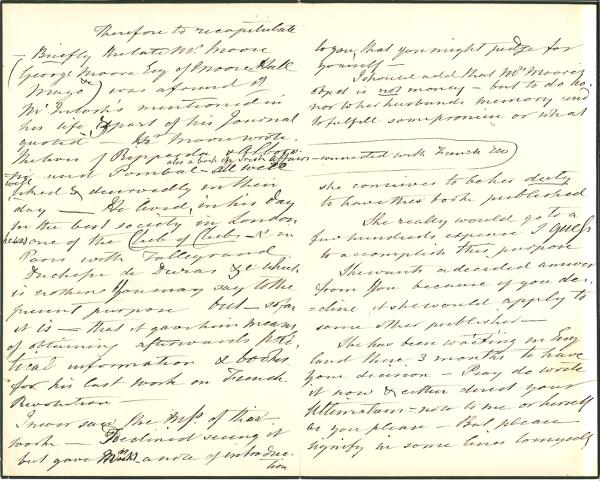 Therefore to recapitulate
– Briefly the late Mr Moore
(George Moore Esq of Moore Hall
Mayo) was a friend of
McIntosh's mentioned in
his life, & part of his Journal
quoted Mr Moore wrote
the lives of Ripperda & Albero-
ni and Pombal – all well
also a book on Irish affairs – connected with French Rev
wrote
liked & deservedly in their
day — He lived, in his day
in the best society in London
he was one of the Club of Clubs – & in
Paris with Talleyrand
Duchesse de Duras &c which
is nothing you may say to the
present purpose but – so far
it is – that it gave him means
of obtaining afterwards poli-
tical information & books
for his last work on French
Revolution —
I never saw the MSS of that
work – Declined seeing it
but gave Mrs M a note of introduc-
tion
to you, that you might judge for
yourself –
I should add that Mrs Moore's
object is not money – but to do ho-
nor to her husband's memory and
to fulfil some promise or what
she conceives to be her duty
to have this book published
She really would go to a
few hundreds expense I guess
to accomplish this purpose
She wants a decided answer
from you because if you de-
cline it she would apply to
some other publisher –
She has been waiting in Eng
land these 3 months to have
your decision – Pray do write
it now & either direct your
Ultimatum – now to me or herself
as you please – But please
signify in some lines to myself